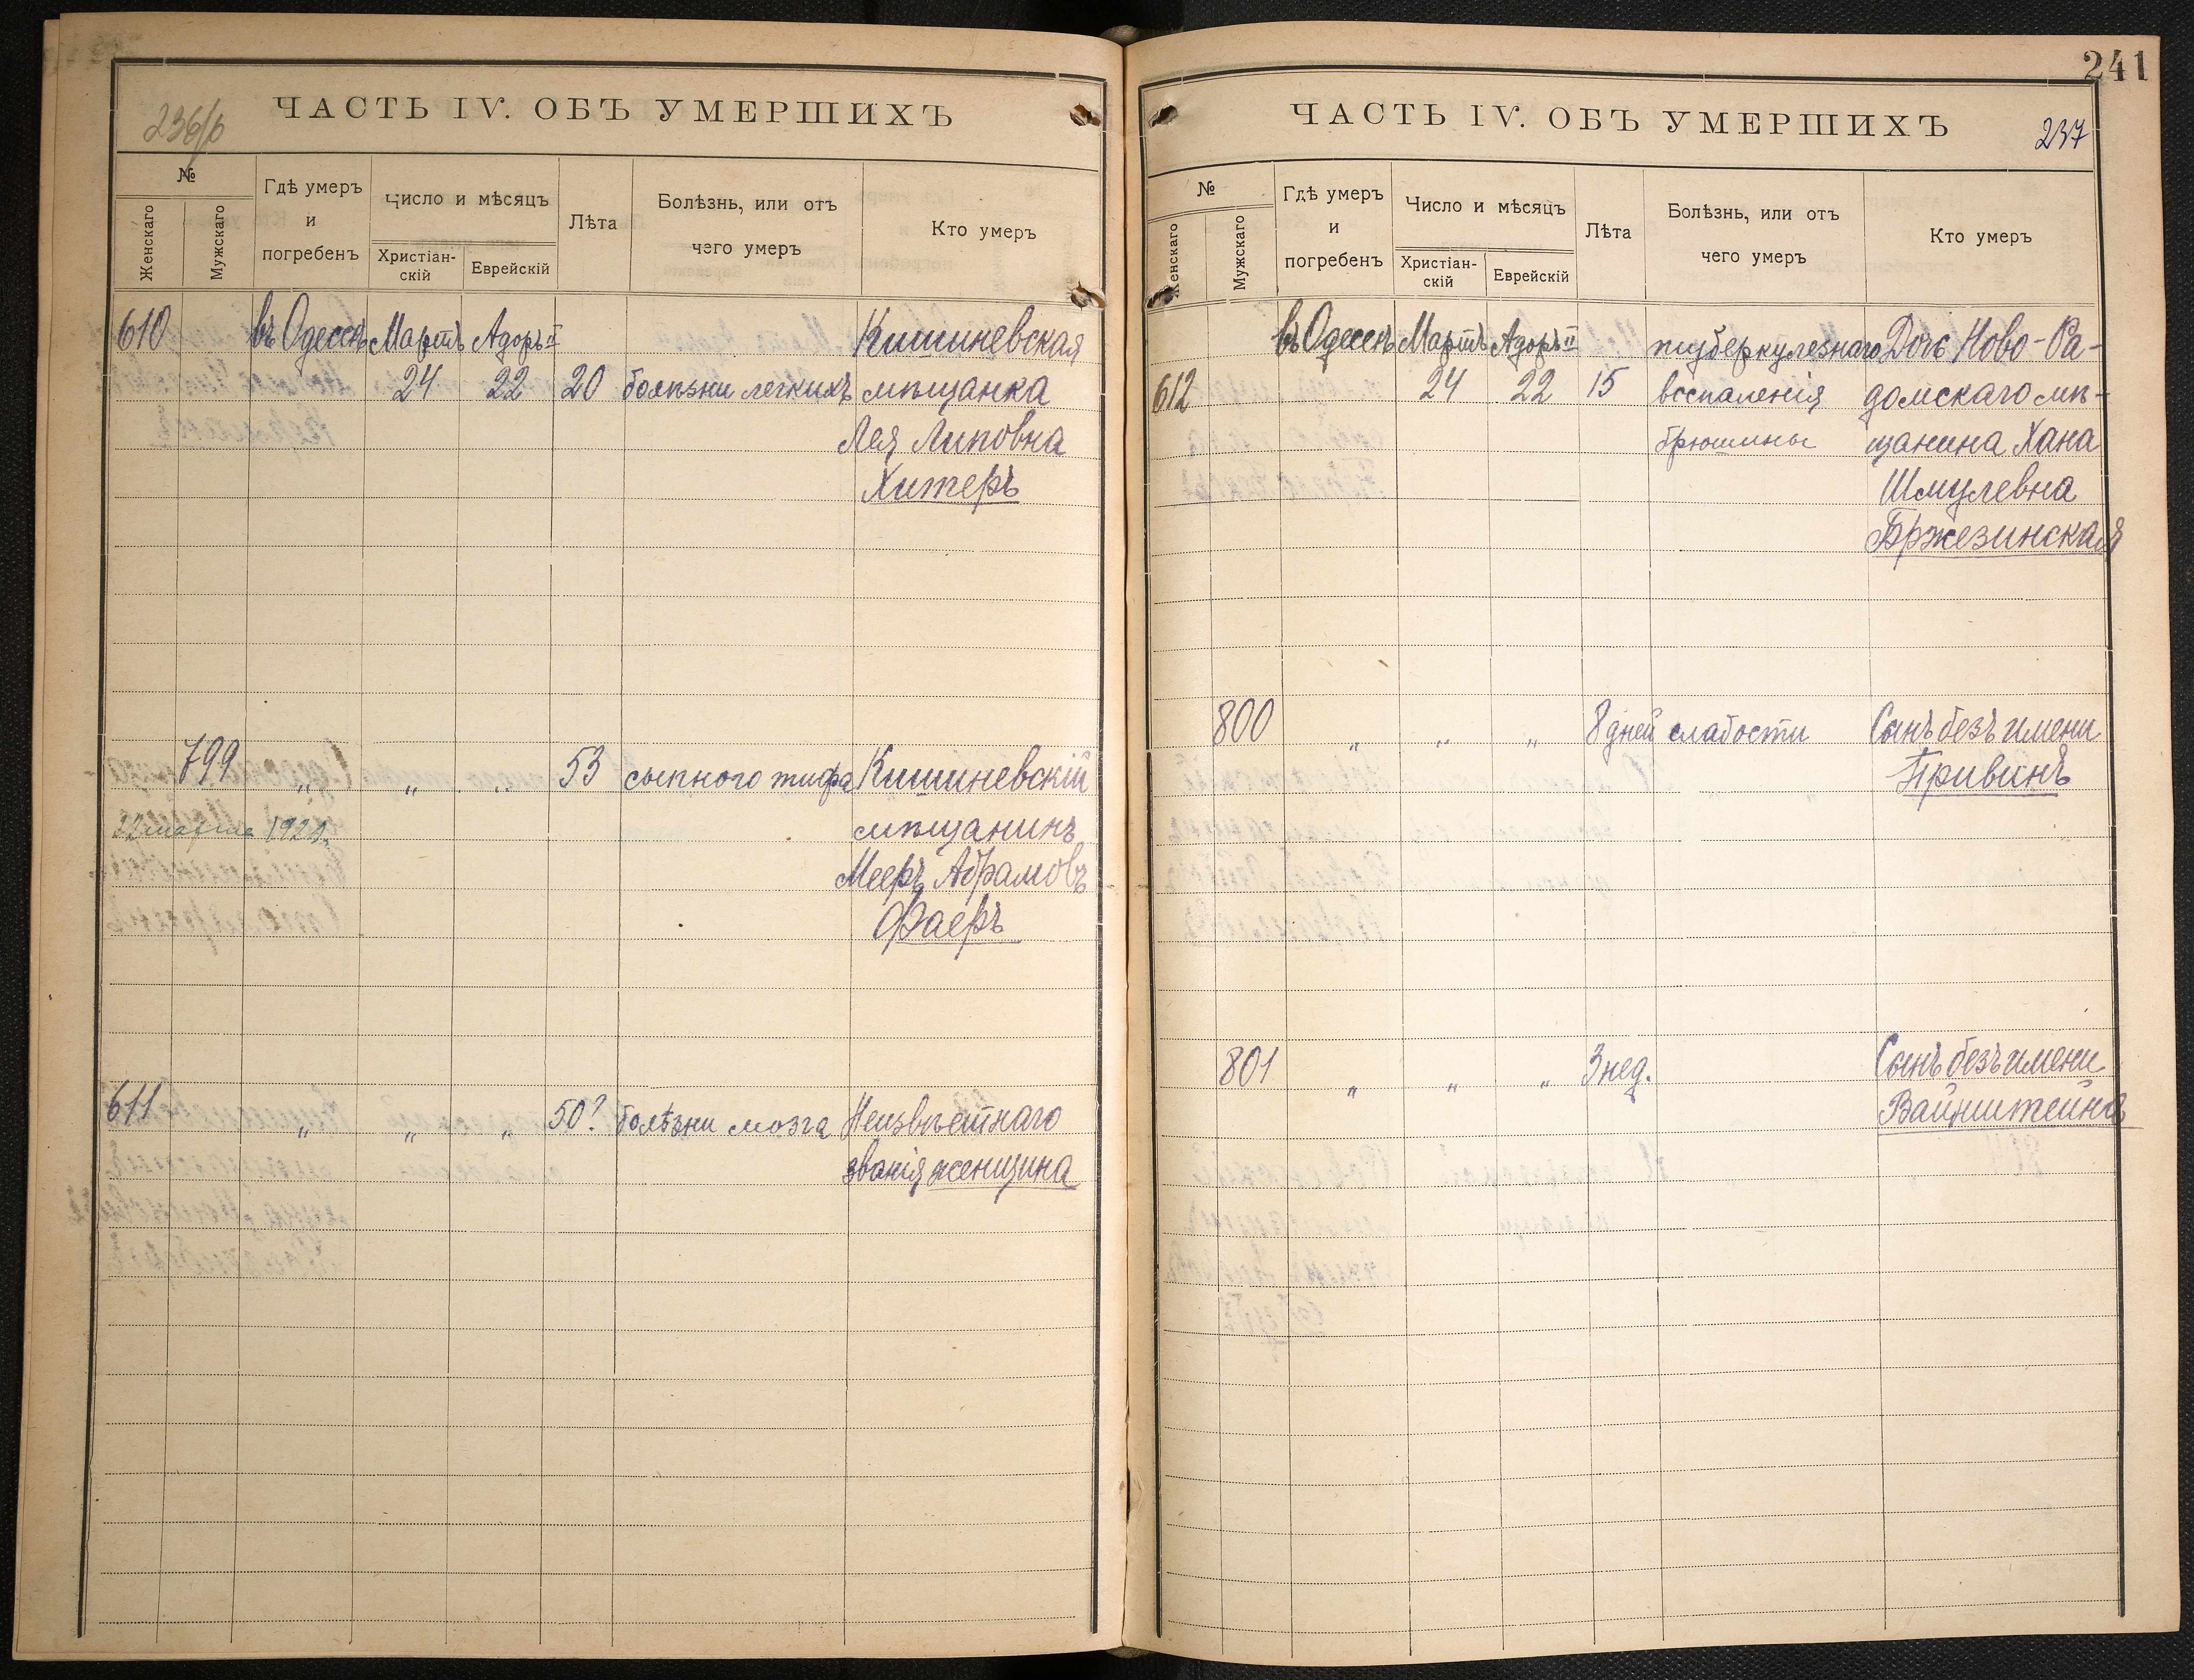 236/b
ЧАСТЬ IV. ОБЪ УМЕРШИХЪ
№
Женскаго
Мужскаго
Гдѣ умеръ
и
погребенъ
Число и мѣсяцъ
Христіан-
скій
Еврейскій
Лѣта
Болѣзнь, или отъ
чего умеръ
Кто умеръ
610 въ Одессѣ Мартъ Адоръ II Кишиневская
24 22 20 болѣзни легкихъ мѣщанка
Лея Липовна
Хитеръ
799 „ „ „ 53 сыпного тифа Кишиневскій
22 марта 1921. мѣщанинъ
Мееръ Абрамовъ
Фаеръ
611 „ „ „ 50? болѣзни мозга Неизвѣстнаго
званія женщина
241
ЧАСТЬ IV. ОБЪ УМЕРШИХЪ
237
№
Женскаго
Мужскаго
Гдѣ умеръ
и
погребенъ
Число и мѣсяцъ
Христіан-
скій
Еврейскій
Лѣта
Болѣзнь, или отъ
чего умеръ
Кто умеръ
въ Одессѣ Мартъ Адоръ II туберкулезнаго Дочь Ново-Ра-
612 24 22 15 воспаленія домскаго мѣ-
брюшины щанина Хана
Шмулевна
Бржезинская
800 „ „ „ 8 дней слабости Сынъ безъ имени
Привинъ
801 „ „ „ 3 нед. Сынъ безъ имени
Вайнштейнъ